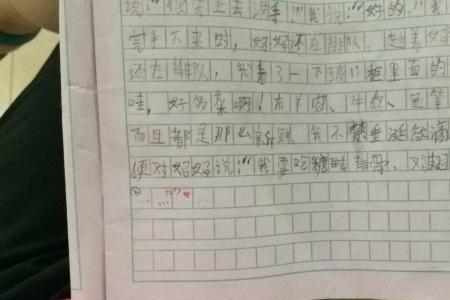 说:“你先上去洗手”我说:“好的。”我
完手下来时,妈妈还在排队,趁着妈
还在排队,我看了一下玻璃柜里面的
哇,好多菜啊!有羊肉、牛肉、鱼等
而且都是那么新鲜 我不禁垂涎欲滴
便对妈妈说:“我要吃糖醋排骨、
……”